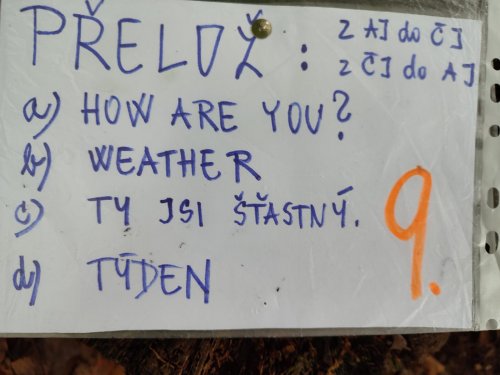 PŘELOŽ:
Z AJ do ČJ
Z ČJ do AJ
a) HOW ARE YOU?
b) WEATHER
c) TY JSI ŠŤASTNÝ.
d) TÝDEN
9.